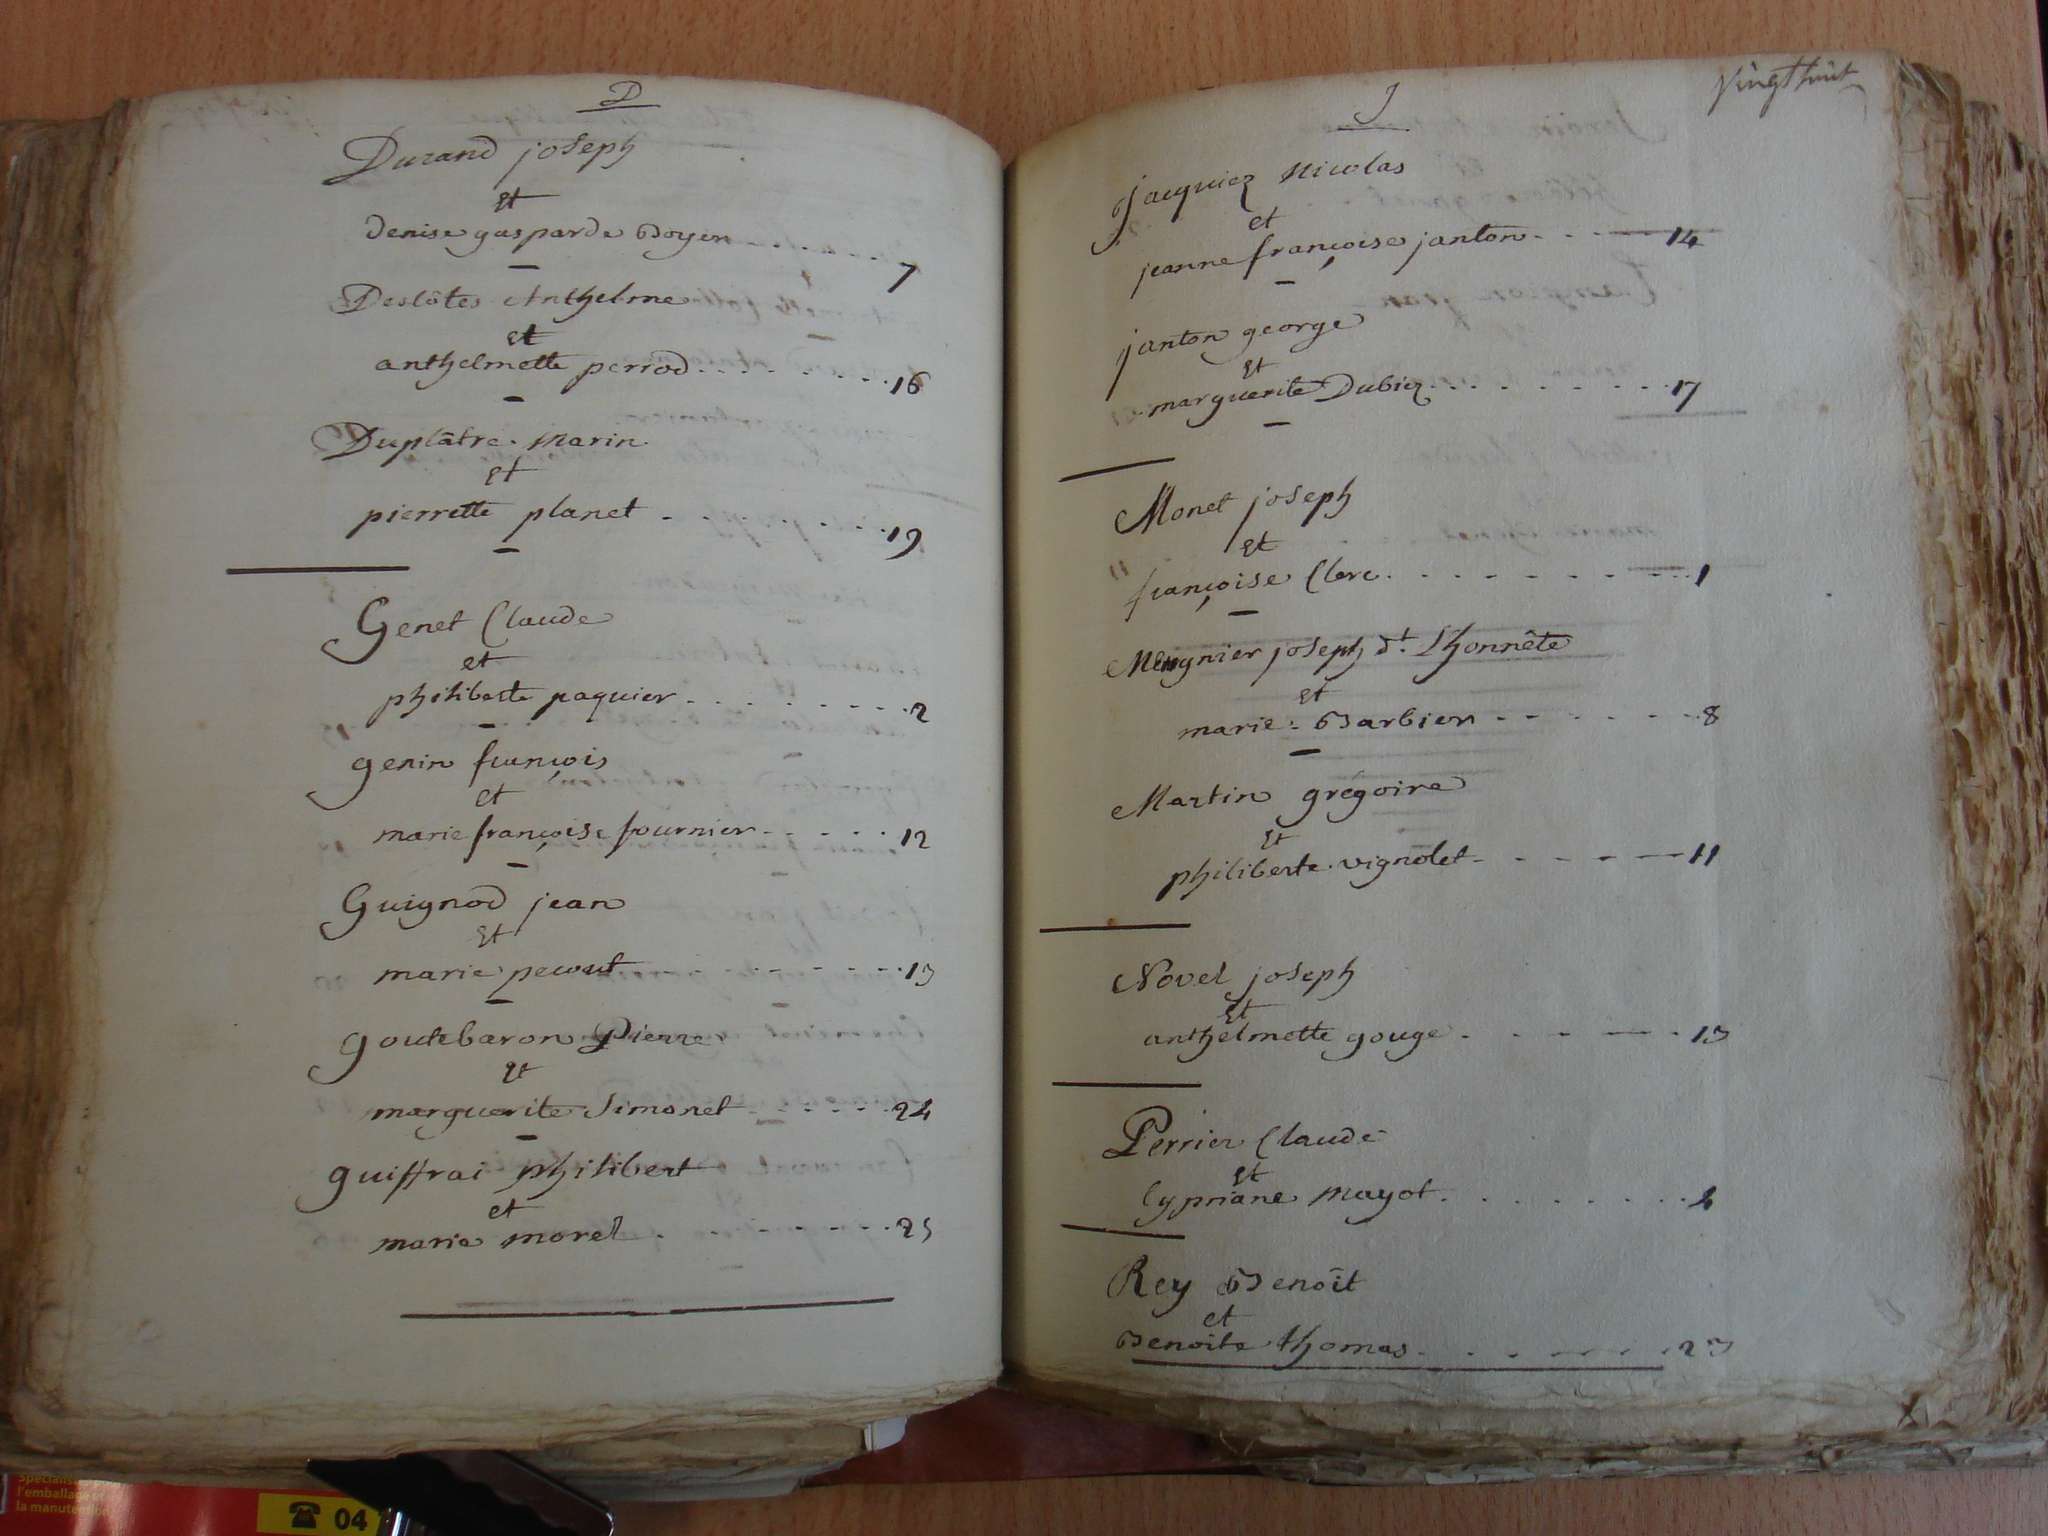 D
Durand joseph
et
denise gasparde Boyer
7
Deslôtes Anthelme
et
anthelmette perrod 16
Duplâtre marin
et
pierrette planet 19
Genet Claude
et
philiberte paquier 2
genin françois
et
marie françoise fournier 12
Guignod jean
et
marie pecout 13
goutebaron Pierre
et
marguerite Simonet 24
guiffrai philibert
et
marie morel 25
vingt huit
J
jacquier Nicolas
et
jeanne françoise janton 14
janton george
et
marguerite Dubiez 17
Monet joseph
et
françoise Clerc 1
Meugnier joseph dt. Lhonnête
et
marie Barbier 8
Martin grégoire
et
philiberte vignolet 11
Novel joseph
et
anthelmette gouge 13
Perrier Claude
et
Cypriane mayot 4
Rey Benoît
et
Benoite thomas 23
l'emballage et
la manutention
☎ 04